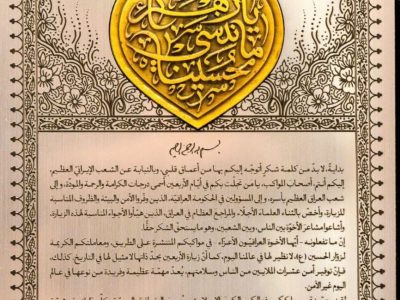 بدايةً، لا بدّ من كلمة شكر أتوجّه إليكم بها من أعماق قلبي، وبالنيابة عن الشعب الإيرانيّ العظيم،
إليكم أنتم، أصحاب المواكب، يا من تجلّت بكم في أيّام الأربعين أسمى درجات الكرامة والرحمة والمودّة، وإلى
شعب العراق العظيم بأسره، وإلى المسؤولين في الحكومة العراقيّة، الذين وفّروا الأمن والبيئة والظروف المناسبة
للزيارة، وأخصّ بالثناء العلماء الأجلّاء، والمراجع العظام في العراق، الذين هيّأوا الأجواء المناسبة لهذه الزيارة،
وأشاعوا مشاعر الأخوّة بين الناس، وبين الشعبين، وهو ما يستحقّ الشكر حقًّا.
إنّ ما تفعلونه - أيّها الأخوة العراقيّون الأعزّاء - في مواكبكم المنتشرة على الطريق، ومعاملتكم الكريمة
لزوّار الحسين (ع)، لا نظير لها في عالمنا اليوم، كما أنّ زيارة الأربعين بحدّ ذاتها لا مثيل لها في التاريخ، كذلك،
فإنّ توفير أمن عشرات الملايين من الناس وسلامتهم، يُعدّ مهمّة عظيمة وفريدة من نوعها في عالم
اليوم غير الآمن.